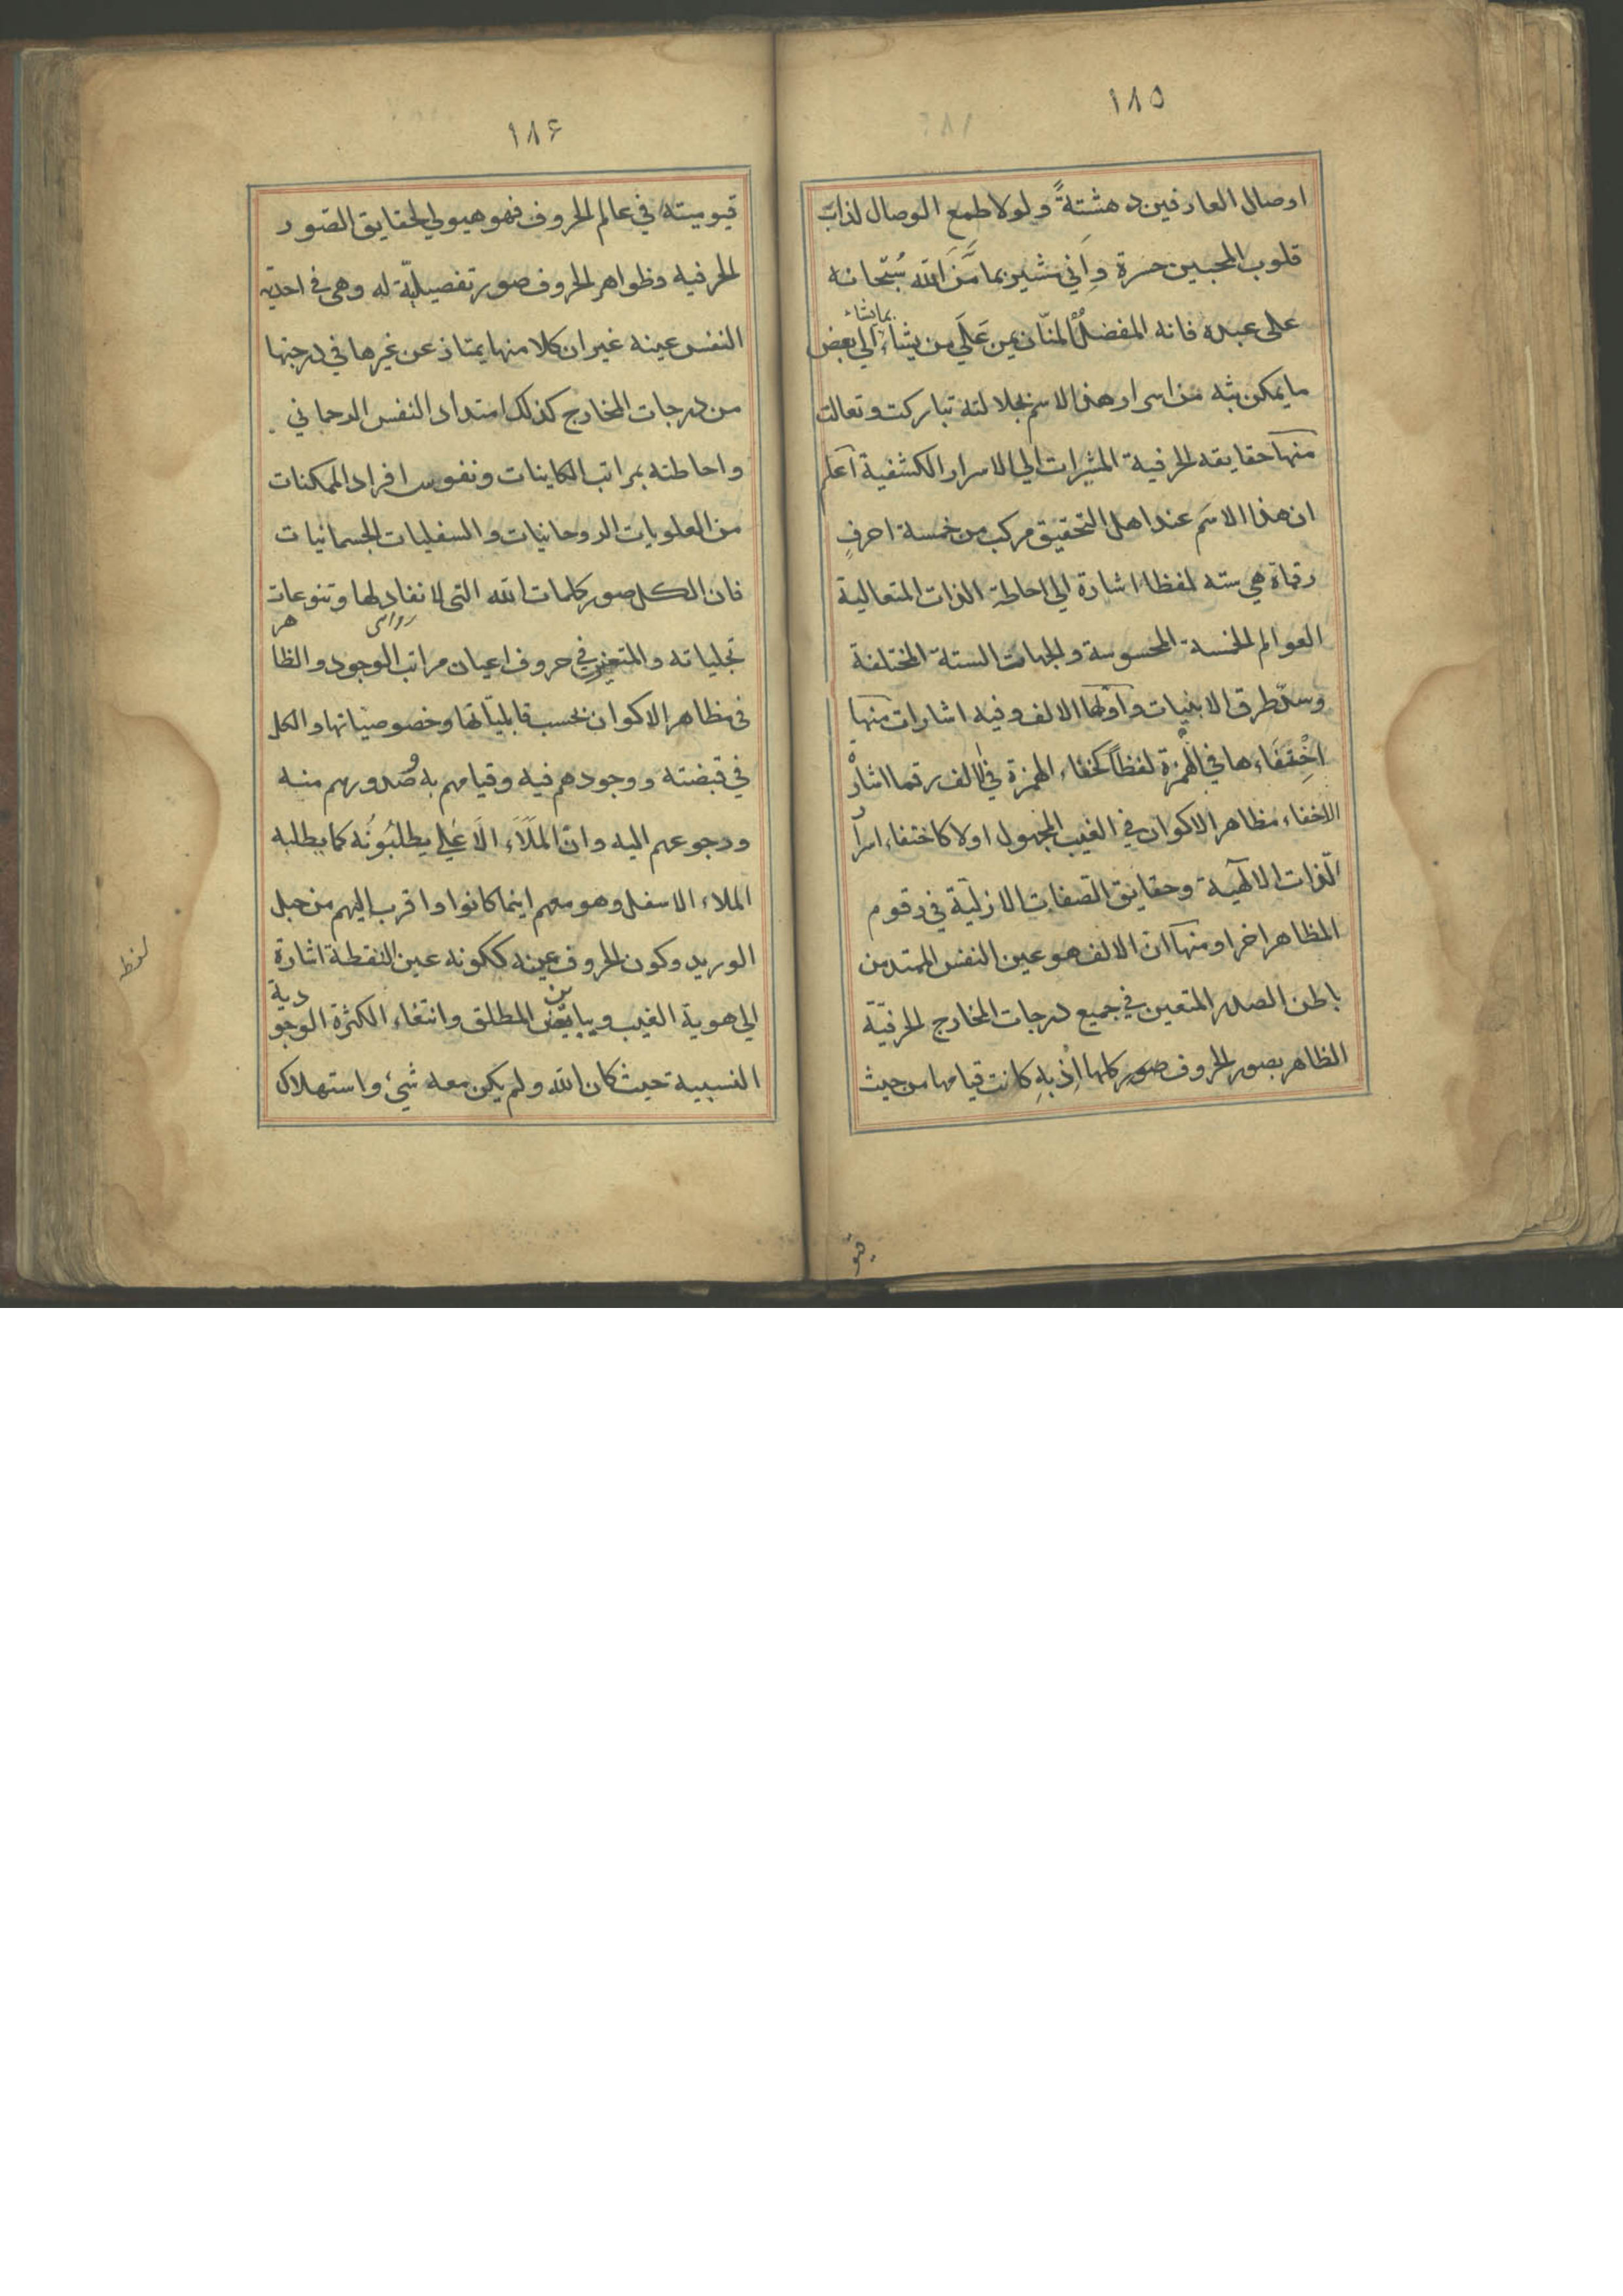 ١٨٥
اوصال العارفين دهشتةً ولولا طمع الوصال لذاب
قلوب المحبين حسرة واني مشير بما مَنَّ الله سُبّحانه
على عبده فانه المفضلُ المنّان يمن عَلَى من يشاء بما يشاء الي بعض
ما يمكن بثه من اسرار هذا الاسم بجلالته تباركت وتعالت
منها حقايقه الحرفية المشيرات الي الاسرار الكشفية اعلم
ان هذا الاسم عند اهل التحقيق مركب من خمسة احرفٍ
رقماة هي ستة لفظا اشارة الي احاطة الذات المتعالية
العوالم الخمسة المحسوسة والجهات الستة المختلفة
وسدّ طرق الاينيات واولها الالف وفيه اشارات منها
اخْتِفَاءها في الهمزة لفظاً كخفاء الهمزة في الالف رقما اشارة
الاخفاء مظاهر الاكوان في الغيب المجهول اولا كاختفاء اسرار
الّذات الالهية وحقايق الصفات الازلية في رقوم
المظاهر اخرا ومنها ان الالف هو عين النفس الممتد من
باطن الصدر المتعين في جميع درجات المخارج الحرفيّة
الظاهر بصور الحروف صور كلها اِذ بهِ كانت قيامها من حيث
قيو
١٨۶
قيوميته في عالم الحروف فهو هيولي لحقايق الصّور
الحرفية وظواهر الحروف صور تفصيليّة له وهي في احديّه
النفس عينه غير ان كلا منها يمتاز عن غيرها في درجتها
من درجات المخارج كذلك امتداد النفس الرحماني
واحاطته بمراتب الكاينات ونفوس افراد الممكنات
من العلويات الروحانيات والسفليات الجسمانيات
فان الكل صور كلمات الله التي لا نفاد لها وتنوعات
تجلياته والمتعين في حروف اعيان مراتب الوجود والظاهر
في مظاهر الاكوان بحسب قابلياتها وخصوصياتها والكل
في قبضته ووجودهم فيه وقيامهم به وصُدورهم منه
ورجوعهم اليه وان المَلَاَء الاَعَلي يطلبُونُه كما يطلبه
الملاء الاسفل وهو معهم اينما كانوا واقرب اليهم من حبل
الوريد وكون الحروف عينه ككونه عين النقطة اشارة
الي هوية الغيب المطلق وانتفاء الكثرة الوجودية
النسبية حيث كان الله ولم يكن معه شيئ واستهلاك